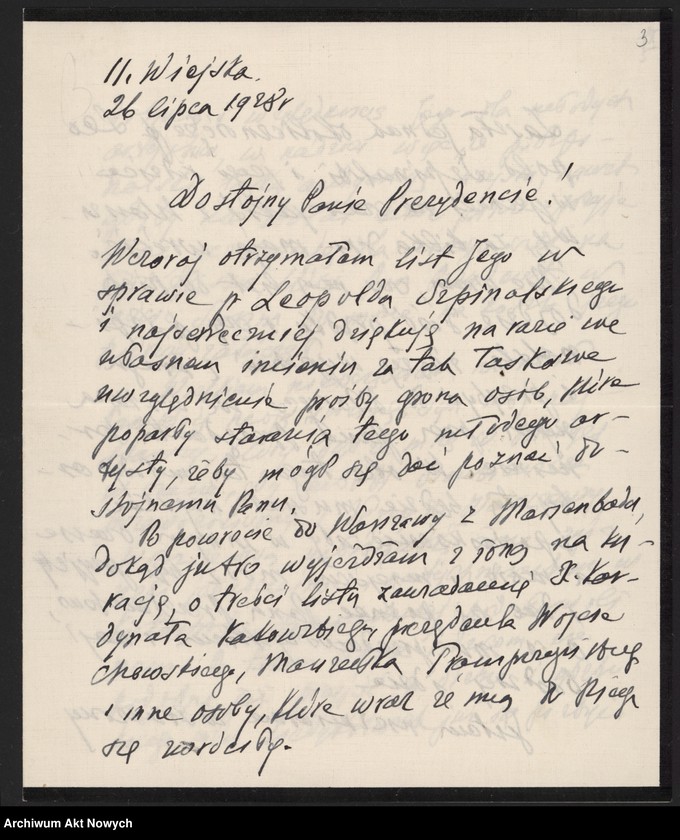 3
11. Wiejska.
26 lipca 1928 r
Dostojny Panie Prezydencie!
Wczoraj otrzymałem list Jego w
sprawie p Leopolda Szpinalskiego
i najserdeczniej dziękuję na razie we
własnem imieniu za tak łaskawe
uwzględnienie prośby grona osób, które
poparły starania tego młodego ar-
tysty, żeby mógł się dać poznać do-
stojnemu Panu.
Po powrocie do Warszawy z Marienbadu,
dokąd jutro wyjeżdżam z żoną na ku-
rację, o treści listu zawiadomię X. Kar-
dynała Kakowskiego, prezydenta Wojcie
chowskiego, Marszałka Trąmpczyńskiego
i inne osoby, które wraz ze mną do Niego
się zwróciły.
Archiwum Akt Nowych